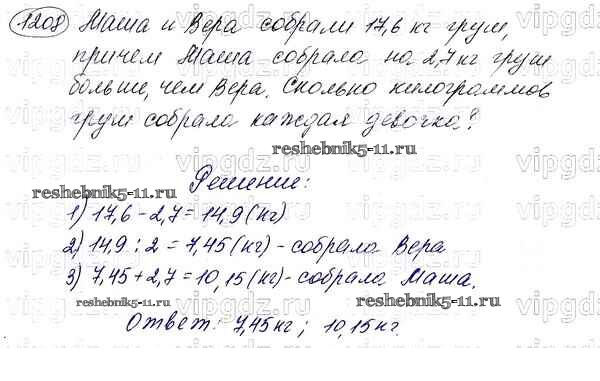 1208 Маша и Вера собрали 17,6 кг груш,
причем Маша собрала на 2,7 кг груш
больше, чем Вера. Сколько килограммов
груш собрала каждая девочка?
reshebnik5-11.ru
Решение:
reshebnik5-11.ru
1) 17,6 - 2,7 = 14,9 (кг)
2) 14,9 : 2 = 7,45 (кг) - собрала Вера
3) 7,45 + 2,7 = 10,15 (кг) - собрала Маша.
reshebnik5-11.ru reshebnik5-11.ru
Ответ: 7,45 кг; 10,15 кг.
vipgdz.ru